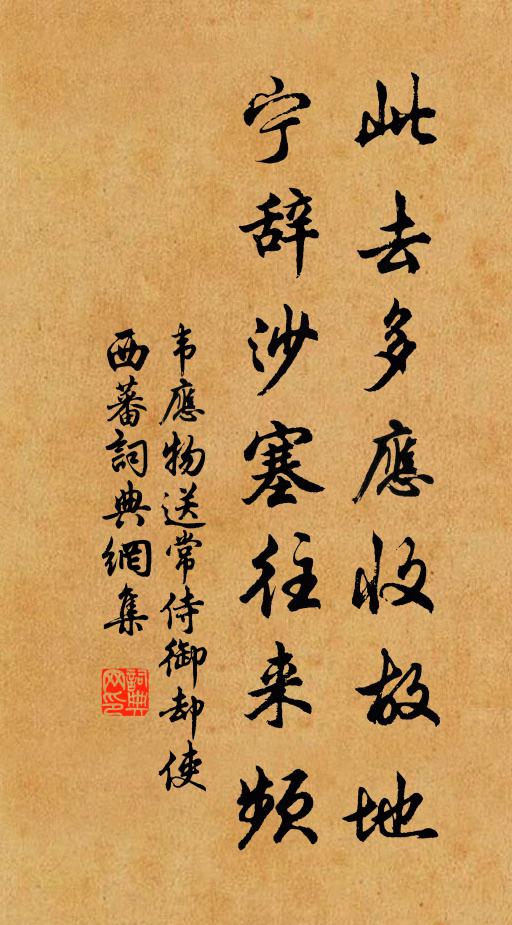 此去多應收故地
宁辞沙塞往来频
韦應物送常侍御却使
西蕃詞典網集
詞典网印